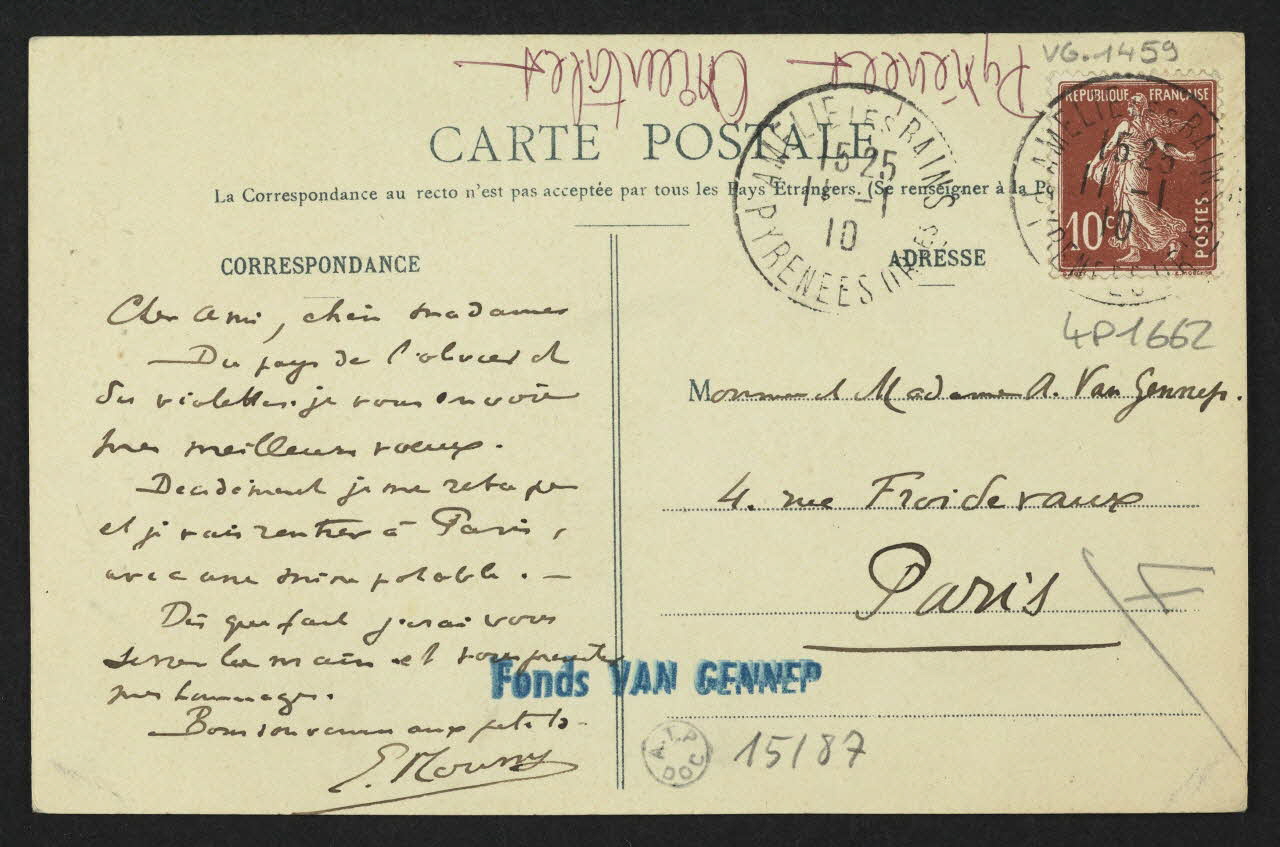 Pyrénées Orientales
VG.1459
CARTE POSTALE
La Correspondance au recto n'est pas acceptée par tous les Pays Etrangers. (Se renseigner à la Po
REPUBLIQUE FRANÇAISE
10c POSTES
AMELIE LES BAINS
15 25
11 -1
10
PYRENEES ORles
AMELIE LES BAINS
15 25
11 -1
10
CORRESPONDANCE
Cher ami, chère madame
Du pays de l'olivier et
des violettes je vous envoie
mes meilleurs voeux.
Décidément je me retape
et je vais rentrer à Paris,
avec une mine potable. —
Dès que fait j'irai vous
serrer la main et vous présenter
mes hommages.
Bon souvenir aux petits.
ADRESSE
4P1662
Monsieur et Madame A. Van Gennep.
4. rue Froidevaux
Paris
F
Fonds VAN GENNEP
A.T.P DOC
15/87